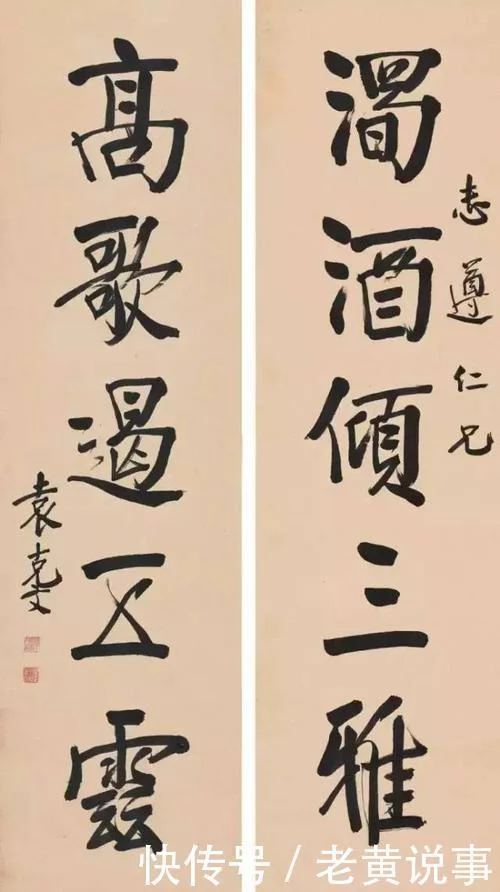 濁酒傾三雅
志遵仁兄
高歌遏五雲
袁克文
快传号/老黄说事